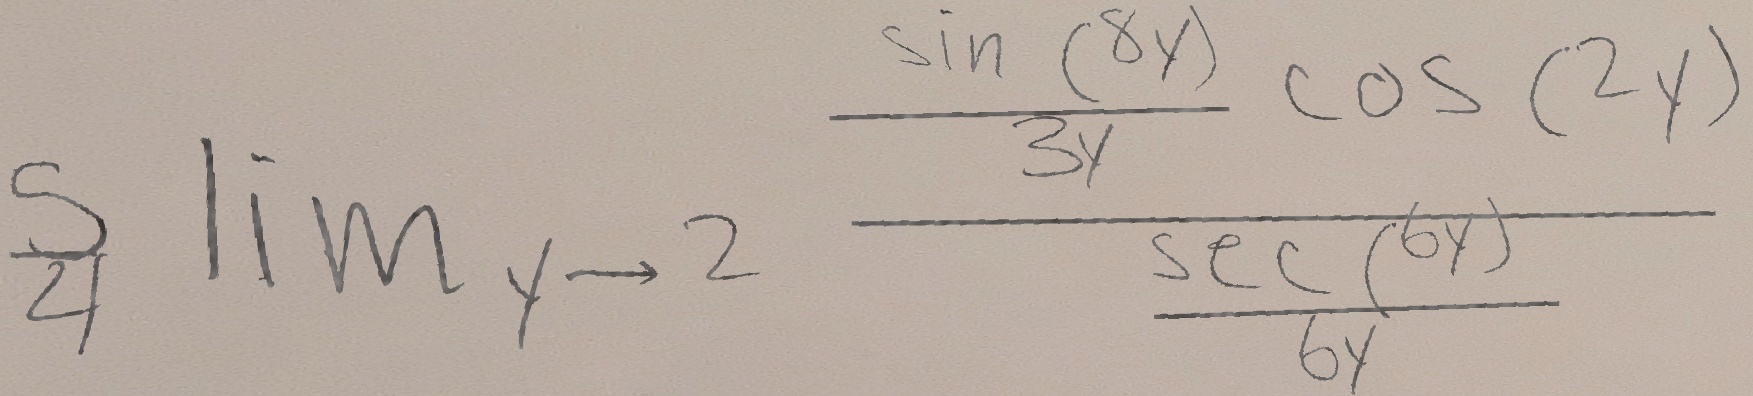 \frac{5}{4} \lim_{y \to 2} \frac{\frac{\sin(8y)}{3y} \cos(2y)}{\frac{\sec(6y)}{6y}}